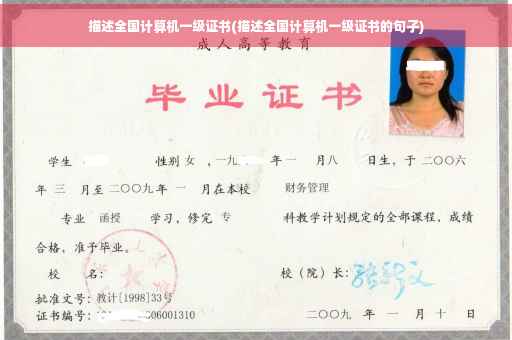 描述全国计算机一级证书(描述全国计算机一级证书的句子)
成人高等教育
毕业证书
学生 性别 女 ，一九 年 一 月八 日生，于 二〇〇六
年 三 月至 二〇〇九 年 一 月在本校 财务管理
专业 函授 学习，修完 专 科教学计划规定的全部课程，成绩
合格，准予毕业。
校 名： 校（院）长：
批准文号：教计[1998]33号
证书编号： 06001310 二〇〇九 年 一 月 十 日